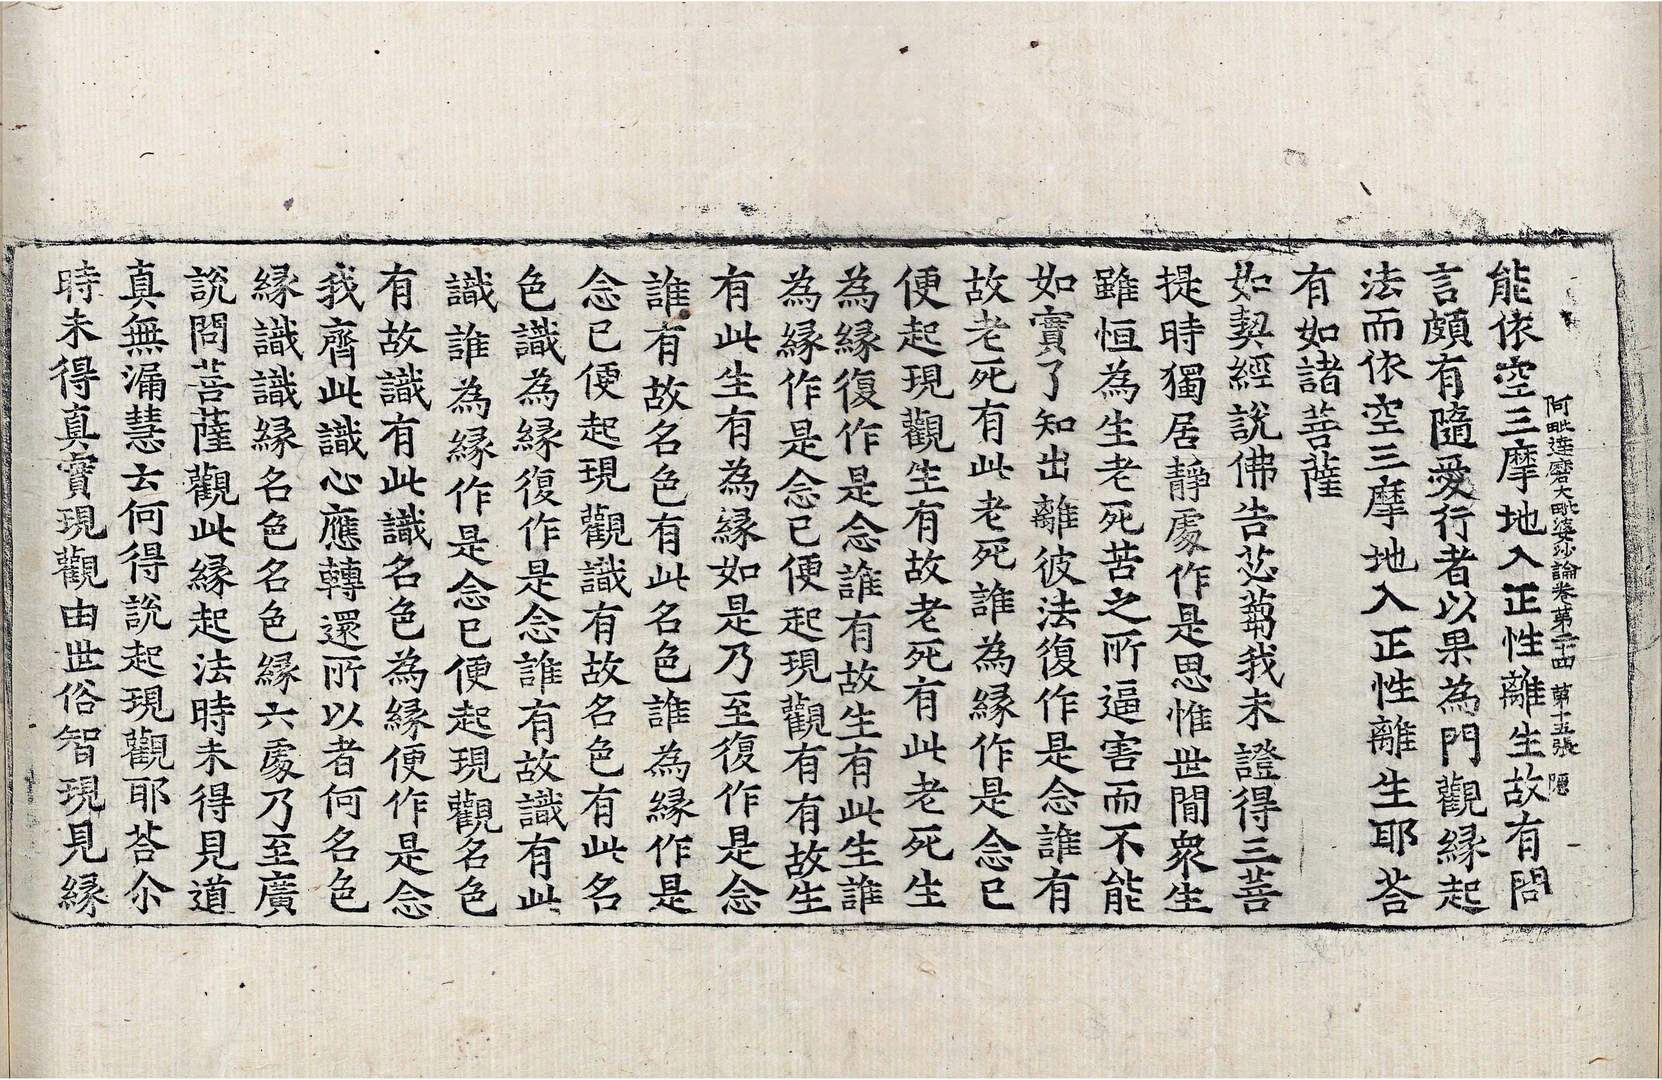 阿毗達磨大毗婆沙論卷第二十四 第十五張 隱
能依空三摩地入正性離生故有問
言頗有隨愛行者以果為門觀縁起
法而依空三摩地入正性離生耶荅
有如諸菩薩
如契經說佛告苾蒭我未證得三菩
提時獨居静處作是思惟世間衆生
雖恒為生老死苦之所逼害而不能
如實了知出離彼法復作是念誰有
故老死有此老死誰為縁作是念已
便起現觀生有故老死有此老死生
為縁復作是念誰有故生有此生誰
為縁作是念已便起現觀有有故生
有此生有為縁如是乃至復作是念
誰有故名色有此名色誰為縁作是
念已便起現觀識有故名色有此名
色識為縁復作是念誰有故識有此
識誰為縁作是念已便起現觀名色
有故識有此識名色為縁便作是念
我齊此識心應轉還所以者何名色
縁識識縁名色名色縁六處乃至廣
說問菩薩觀此縁起法時未得見道
真無漏慧云何得說起現觀耶荅尒
時未得真實現觀由世俗智現見縁